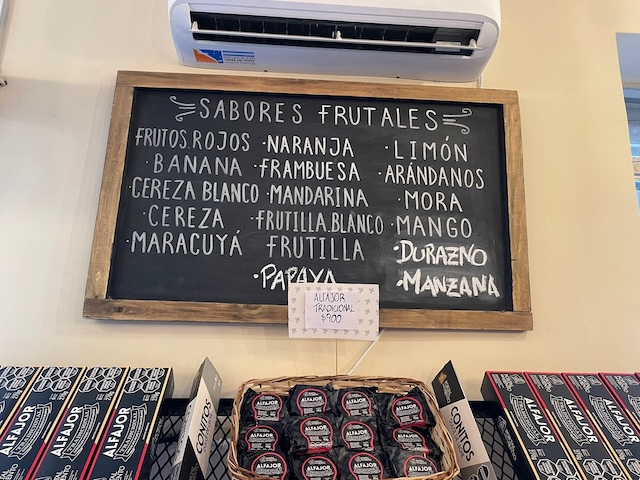 SABORES FRUTALES
FRUTOS.ROJOS
·BANANA
·CEREZA BLANCO
·CEREZA
·MARACUYÁ
·NARANJA
·FRAMBUESA
·MANDARINA
·FRUTILLA.BLANCO
FRUTILLA
·PAPAYA
·LIMÓN
·ARÁNDANOS
·MORA
·MANGO
·DURAZNO
·MANZANA
ALFAJOR
TRADICIONAL
$900
ALFAJOR
ALFAJOR
ALFAJOR
CONITOS
ALFAJOR
ALFAJOR
ALFAJOR
ALFAJOR
ALFAJOR
ALFAJOR
ALFAJOR
ALFAJOR
ALFAJOR
ALFAJOR
ALFAJOR
ALFAJOR
CONITOS
ALFAJOR
ALFAJOR
ALFAJOR
ALFAJOR